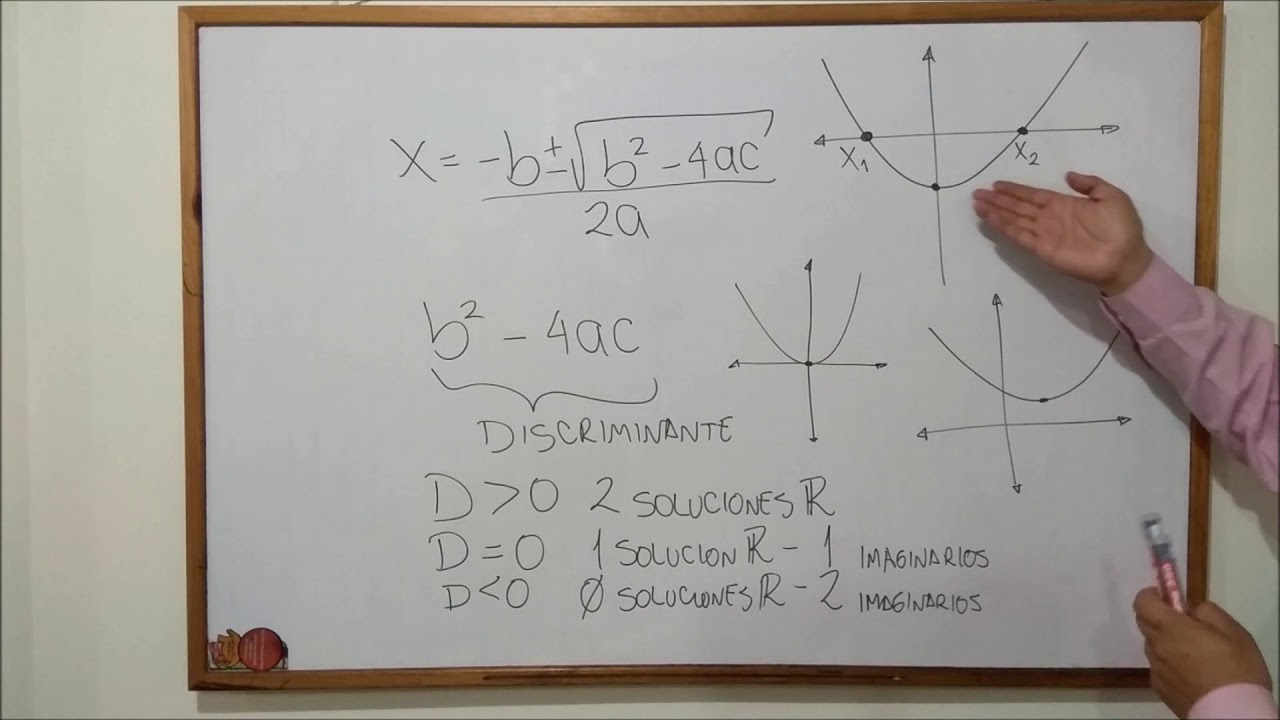 X = -b ± √(b² - 4ac)
2a
X₁ X₂
b² - 4ac
DISCRIMINANTE
D > 0 2 SOLUCIONES ℝ
D = 0 1 SOLUCION ℝ - 1 IMAGINARIOS
D < 0 ∅ SOLUCIONES ℝ - 2 IMAGINARIOS